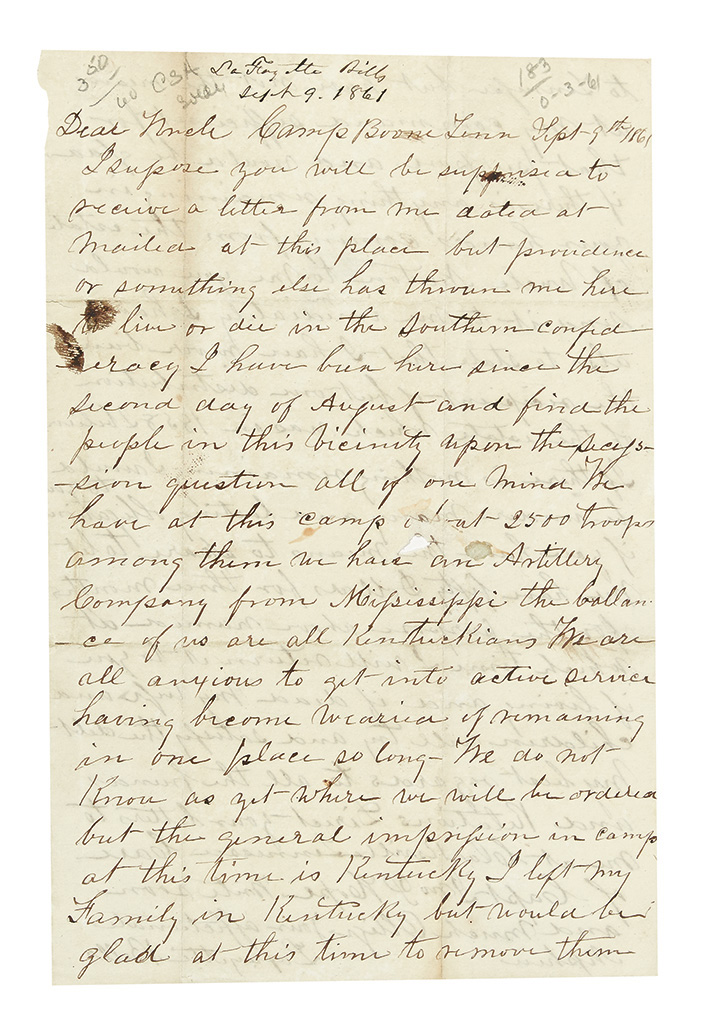 3 50/
60 CSA
183/
0-3-61
La Fayette Bills
Sept 9. 1861
Dear Uncle Camp Boone Tenn Sept 9th/1861
I supose you will be surprised to
receive a letter from me dated at
Mailed at this place but providence
or something else has thrown me here
to live or die in the Southern confed
-eracy I have been here since the
second day of August and find the
people in this Vicinity upon the seces-
-sion question all of one Mind We
have at this camp at 2500 troops
among them we have an Artillery
Company from Mississippi the ballan-
-ce of us are all Kentuckians We are
all anxious to get into active service
having become Wearied of remaining
in one place so long- We do not
Know as yet where we will be ordered
but the general impression in camp
at this time is Kentucky I left my
Family in Kentucky but would be
glad at this time to remove them